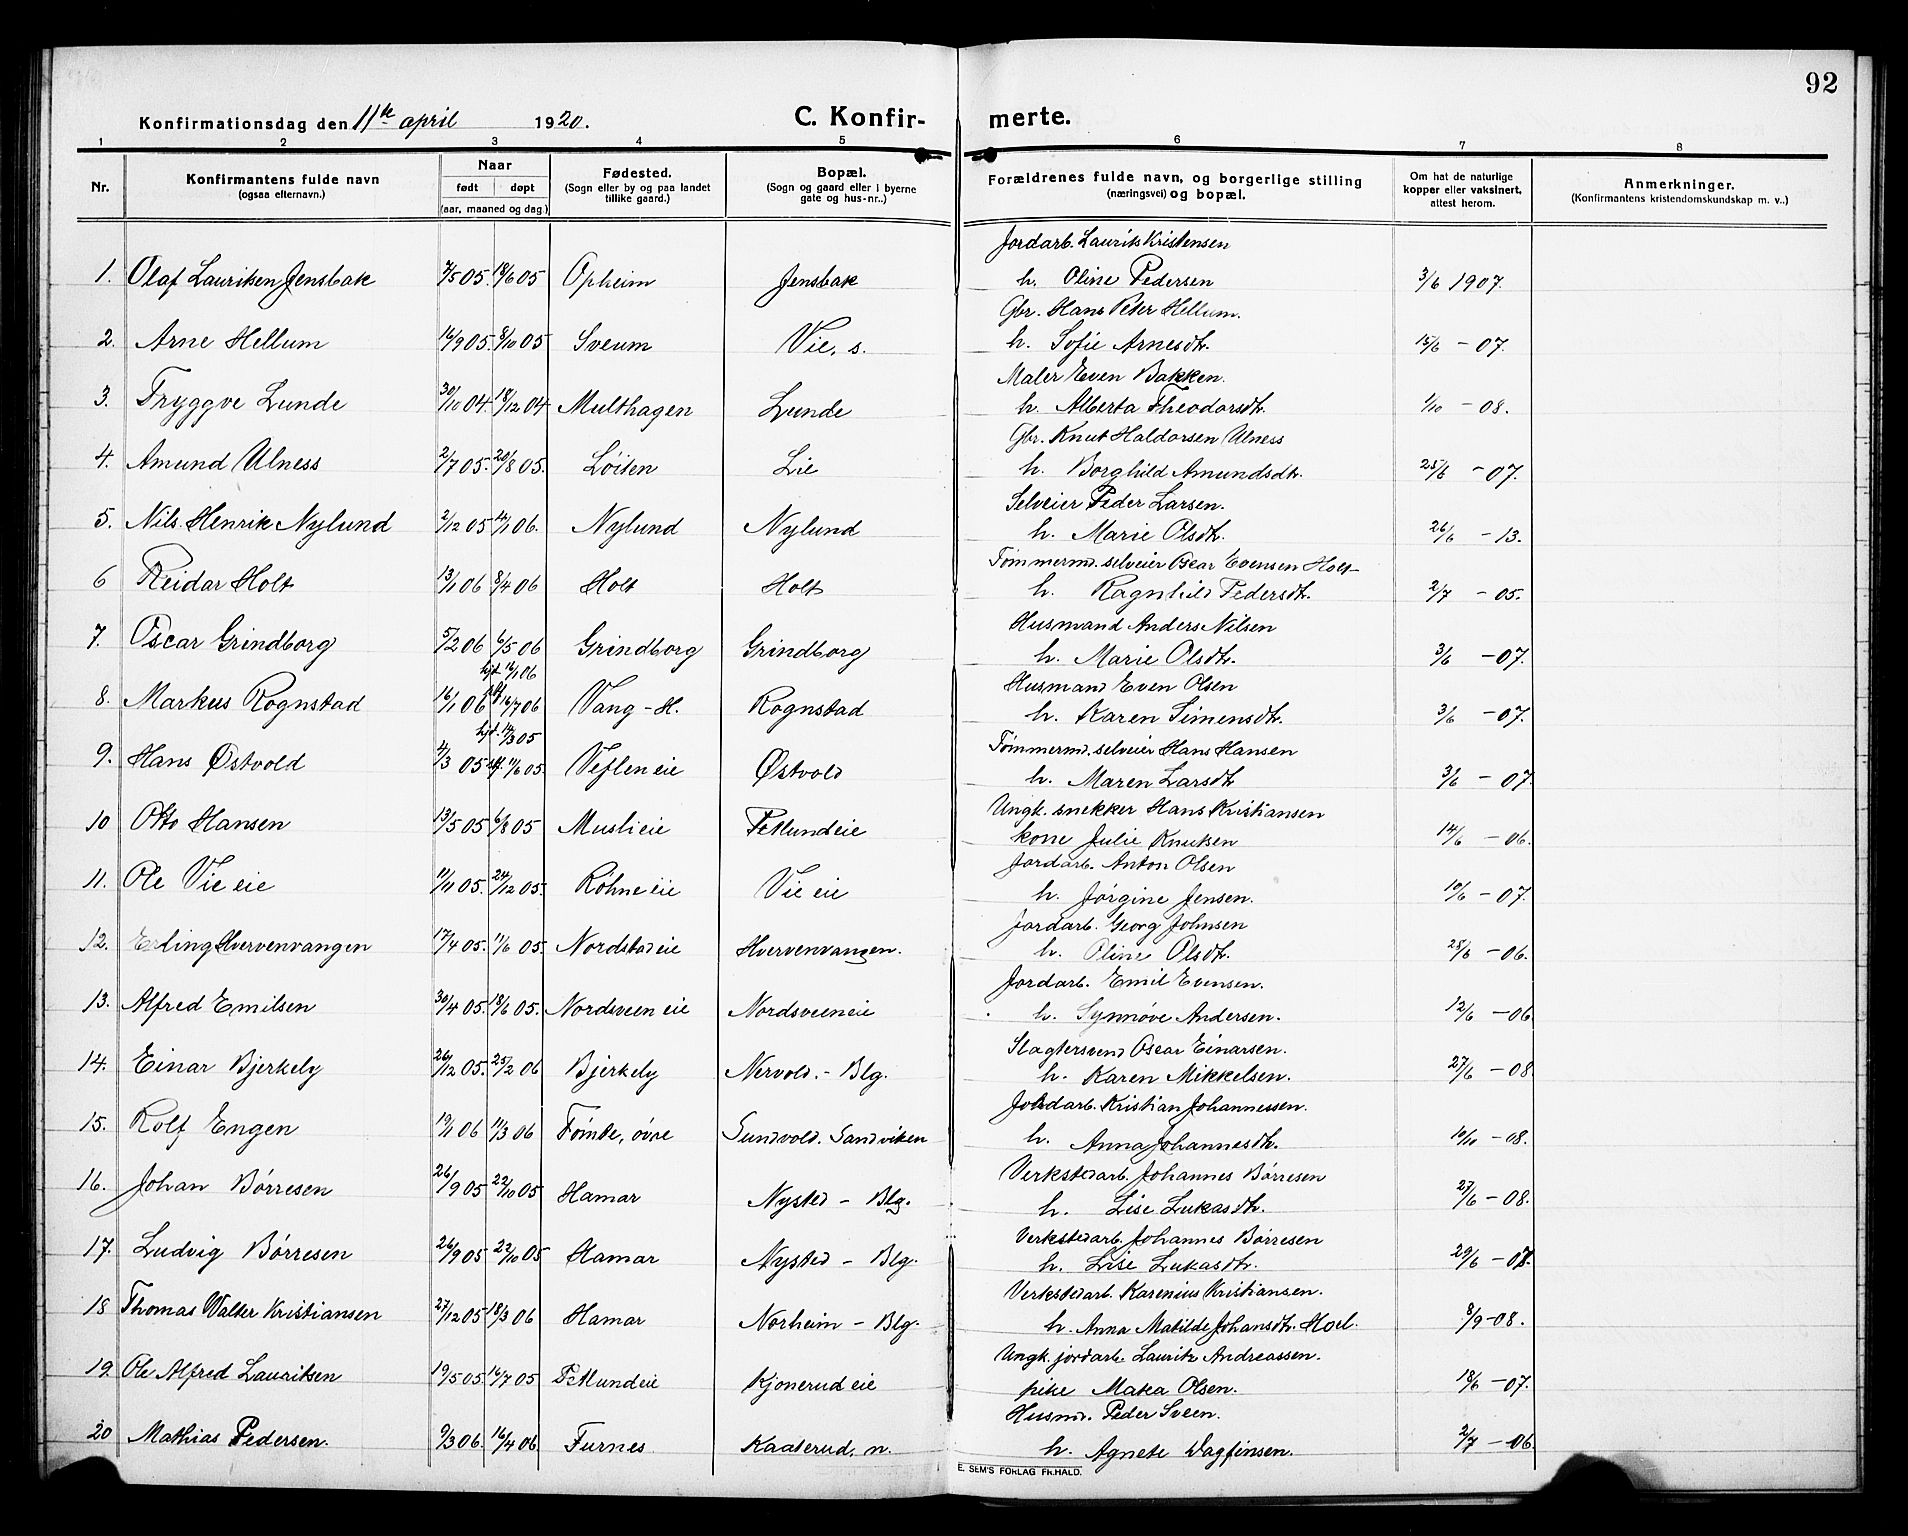 92
Konfirmationsdag den 11te april 1920. C. Konfirmerte.
1 2 3 4 5 6 7 8
Nr. Konfirmantens fulde navn (ogsaa elternavn.) Naar født døpt (aar, maaned og dag.) Fødested. (Sogn eller by og paa landet tillike gaard.) Bopæl. (Sogn og gaard eller i byerne gate og hus-nr..) Forældrenes fulde navn, og borgerlige stilling (næringsvei) og bopæl. Om hat de naturlige kopper eller vaksinert, attest herom. Anmerkninger. (Konfirmantens kristendomskundskap m. v..)
Jordarb. Laurits Kristensen
1. Olaf Lauritsen Jensbak 7/5 05. 18/6 05 Opheim Jensbak h. Oline Pedersen 3/6 1907.
Gbr. Hans Peter Hellum.
2. Arne Hellum 16/9 05. 8/10 05 Sveum Vie, s. h. Sofie Arnesdtr. 15/6 - 07.
Maler Even Bakken.
3. Tryggve Lunde 30/10 04. 18/12 04 Multhagen Lunde h. Alberta Theodorsdtr. 1/10 - 08.
Gbr. Knut Haldorsen Ulness
4. Amund Ulness 2/7 05. 20/8 05. Løiten Lie h. Borghild Amundsdtr. 25/6 - 07.
Selveier Peder Larsen.
5. Nils Henrik Nylund 2/12 05 14/1 06. Nylund Nylund h. Marie Olsdtr. 26/6 - 13.
Tømmermd. selveier Oscar Evensen Holt
6 Reidar Holt 13/1 06 8/4 06 Holt Holt h. Ragnhild Pedersdtr. 2/7 - 05.
Husmand Anders Nilsen
7. Oscar Grindborg 5/2 06 6/5 06 Grindborg Grindborg h. Marie Olsdtr. 3/6 - 07.
hjd. 16/1 06 Husmand Even Olsen
8. Markus Rognstad 16/1 06 16/7 06 Vang - H. Rognstad h. Karen Simensdtr. 3/6 - 07.
hjd. 14/3 05 Tømmermd. selveier Hans Hansen
9. Hans Østvold 4/3 05 11/6 05. Veflen eie Østvold h. Maren Larsdtr 3/6 - 07.
Ungk. snekker Hans Kristiansen
10 Otto Hansen 13/5 05 6/8 05 Musli eie Tetlund eie kone Julie Knutsen 14/6 - 06.
Jordarb. Anton Olsen
11. Ole Vie eie 11/11 05. 24/12 05. Røhne eie Vie eie h. Jørgine Jensen. 10/6 - 07.
Jordarb. Georg Johnsen
12. Erling Hvervenvangen 17/4 05. 11/6 05. Nordstad eie Hvervenvangen. h. Oline Olsdtr. 25/6 - 06.
Jordarb. Emil Evensen.
13. Alfred Emilsen 30/4 05. 18/6 05. Nordsveen eie Nordsveen eie h. Synnøve Andersen. 12/6 - 06
Slagtersvend Oscar Einarsen.
14. Einar Bjerkely 26/12 05. 25/2 06 Bjerkely Nervold. - Blg. h. Karen Mikkelsen. 27/6 - 08
Jordarb. Kristian Johannessen.
15. Rolf Engen 19/1 06 11/3 06 Tømte, øvre Sundvold. Sandviken h. Anna Johannesdtr. 10/10 - 08.
Verkstedarb. Johannes Børresen
16. Johan Børresen 26/9 05 22/10 05 Hamar Nysted - Blg. h. Lise Lukasdtr. 27/6 - 08.
Verkstedarb. Johannes Børresen
17. Ludvig Børresen 26/9 05 22/10 05 Hamar Nysted - Blg. h. Lise Lukasdtr. 29/6 -
Verkstedarb. Karenius Kristiansen.
18 Thomas Walter Kristiansen 27/12 05 18/3 06 Hamar Norheim - Blg. h. Anna Matilde Johansdtr. Hoel. 8/9 - 08.
Ungk. jordarb. Lauritz Andreassen.
19. Ole Alfred Lauritsen 19/5 05 16/7 05 Tetlund eie Kjonerud eie pike Maka Olsen. 18/6 - 07.
Husmd. Peder Sveen.
20 Mathias Pedersen. 9/3 06. 16/4 06 Furnes Kaaterud, n. h. Agnete Dagfinsen. 2/7 - 06
E. SEM'S FORLAG FR.HALD.